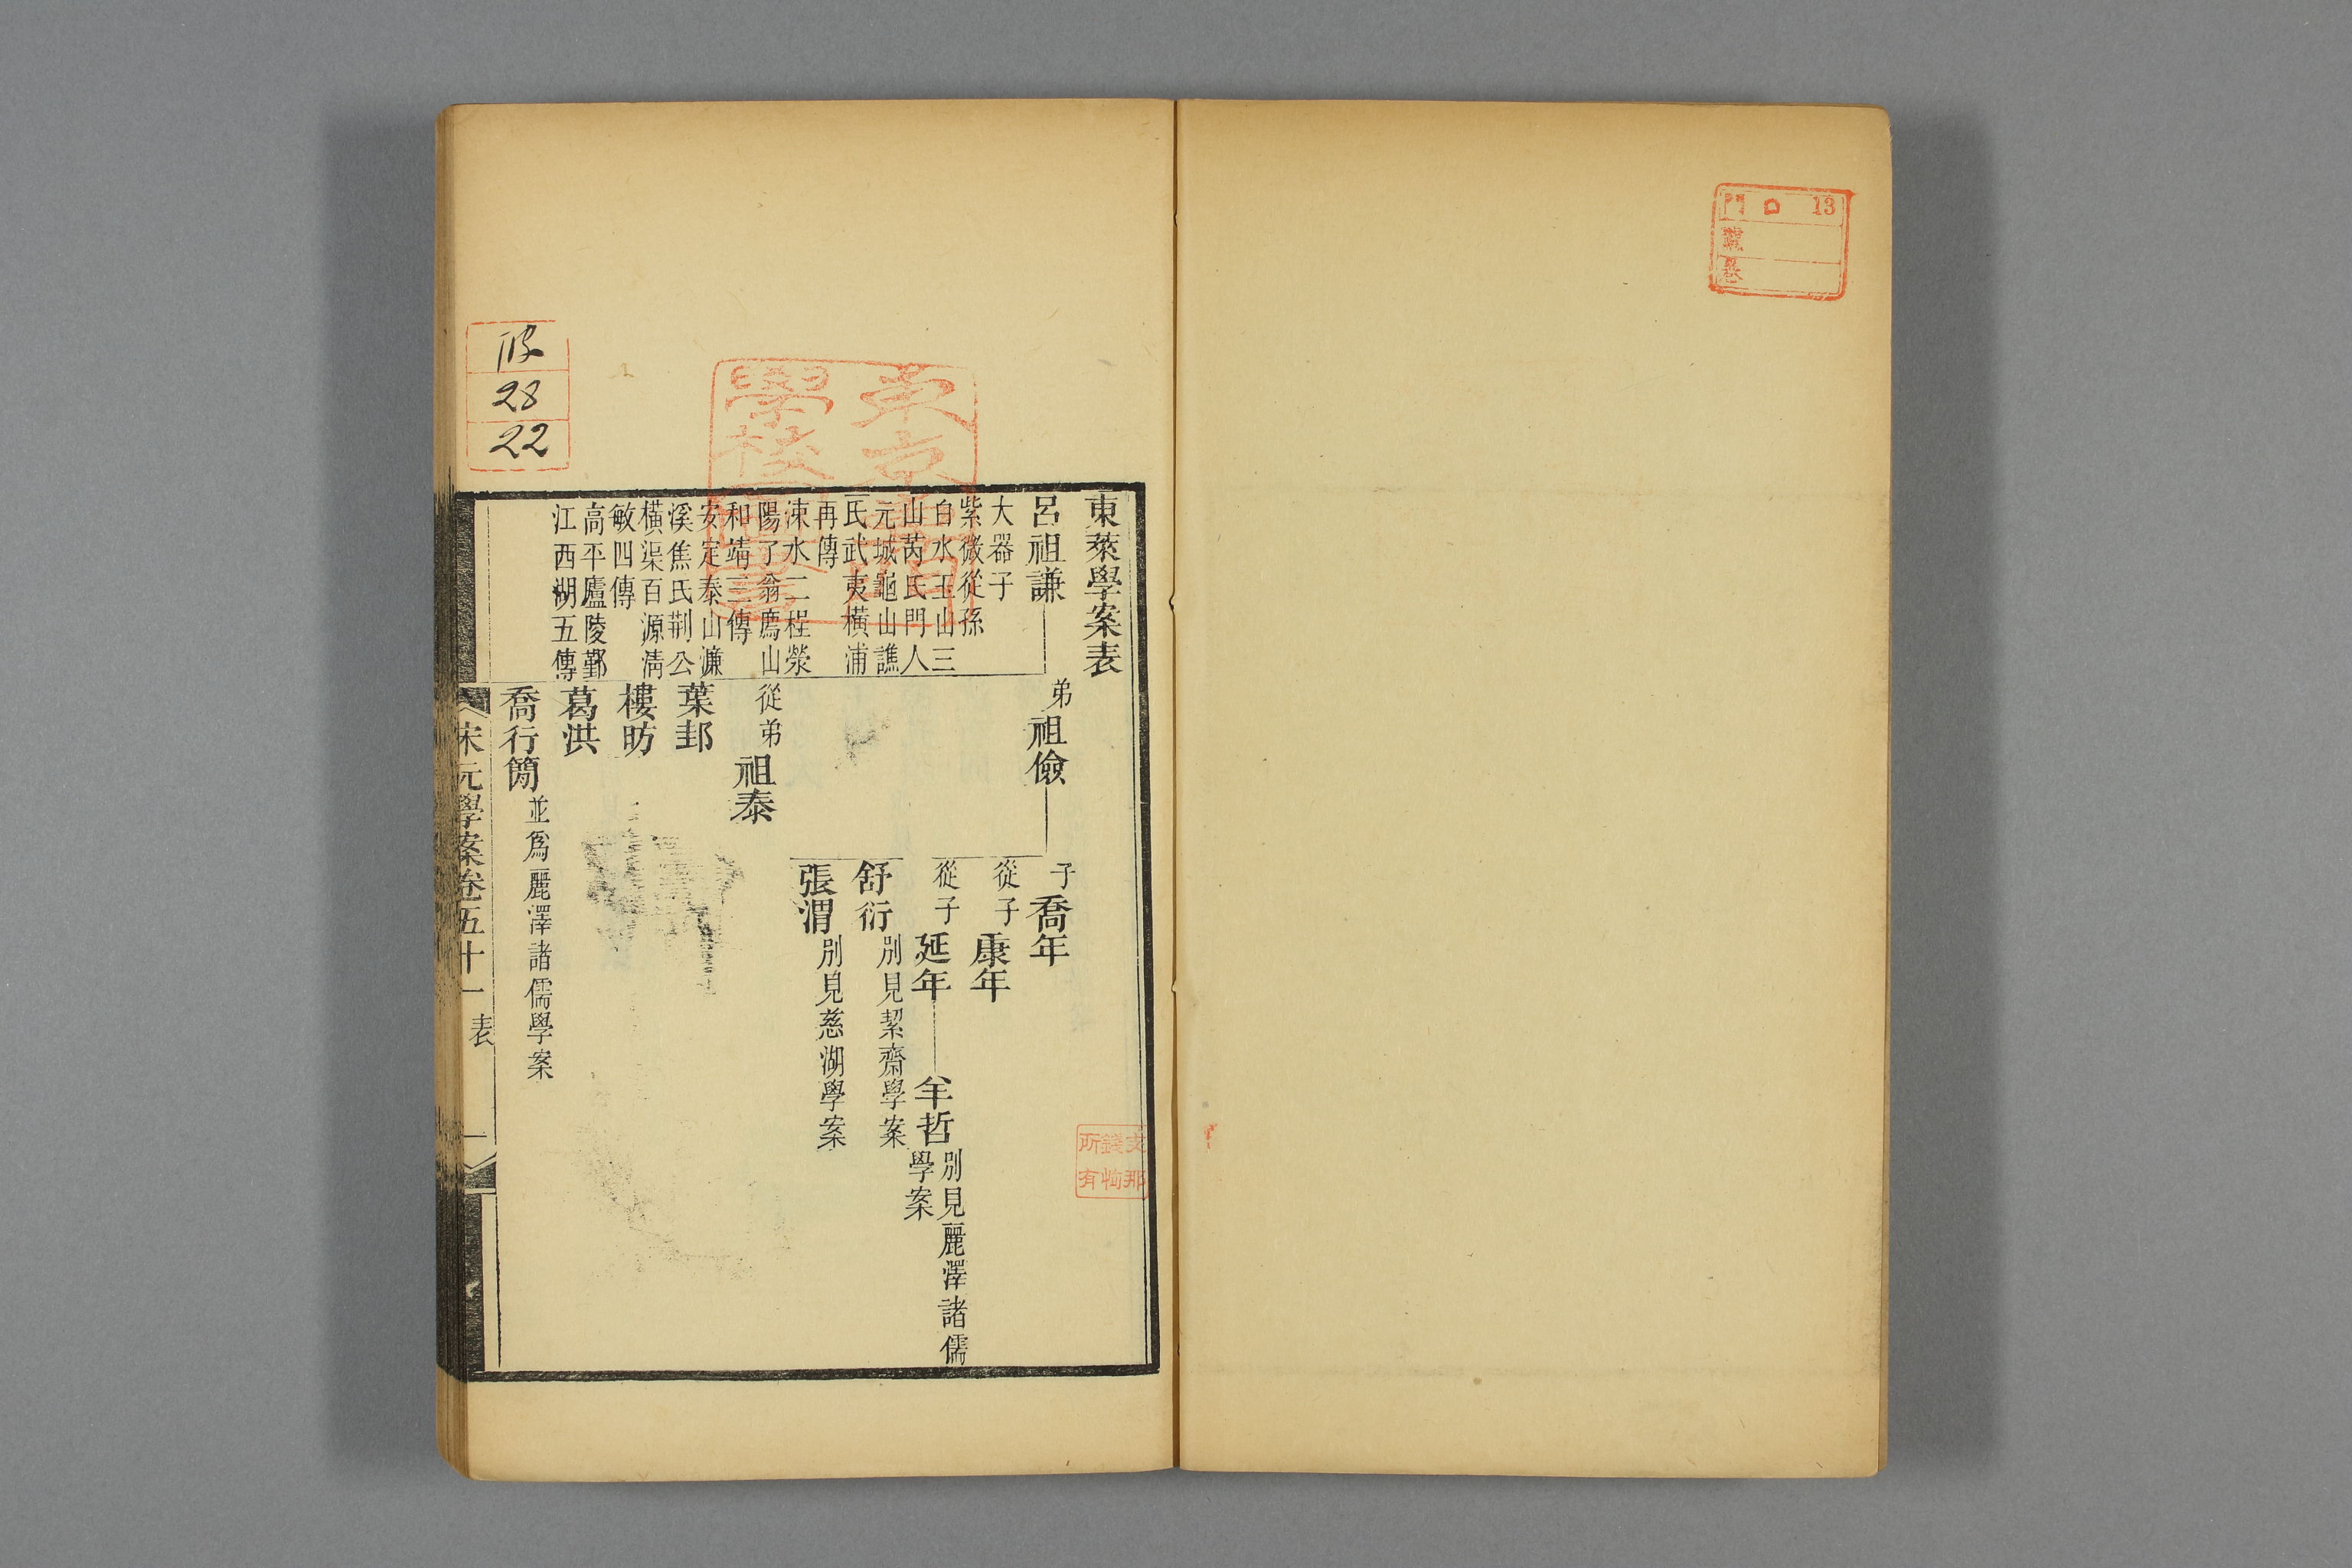 門 ロ 13
號
卷
東萊學案表
呂祖謙
大器子
紫微從孫
白水玉山三
山芮氏門人
元城龜山譙
氏武夷橫浦
再傳
涑水二程滎
陽了翁廌山
和靖三傳
安定泰山濂
溪焦氏荆公
橫渠百源淸
敏四傳
高平廬陵鄞
江西湖五傳
弟祖儉
子喬年
從子康年
從子延年
羊哲別見麗澤諸儒
學案
舒衍別見絜齋學案
張渭別見慈湖學案
從弟祖泰
葉邽
樓昉
葛洪
喬行簡並爲麗澤諸儒學案
宋元學案卷五十一 表 一
28
22
支那
錢恂
所有